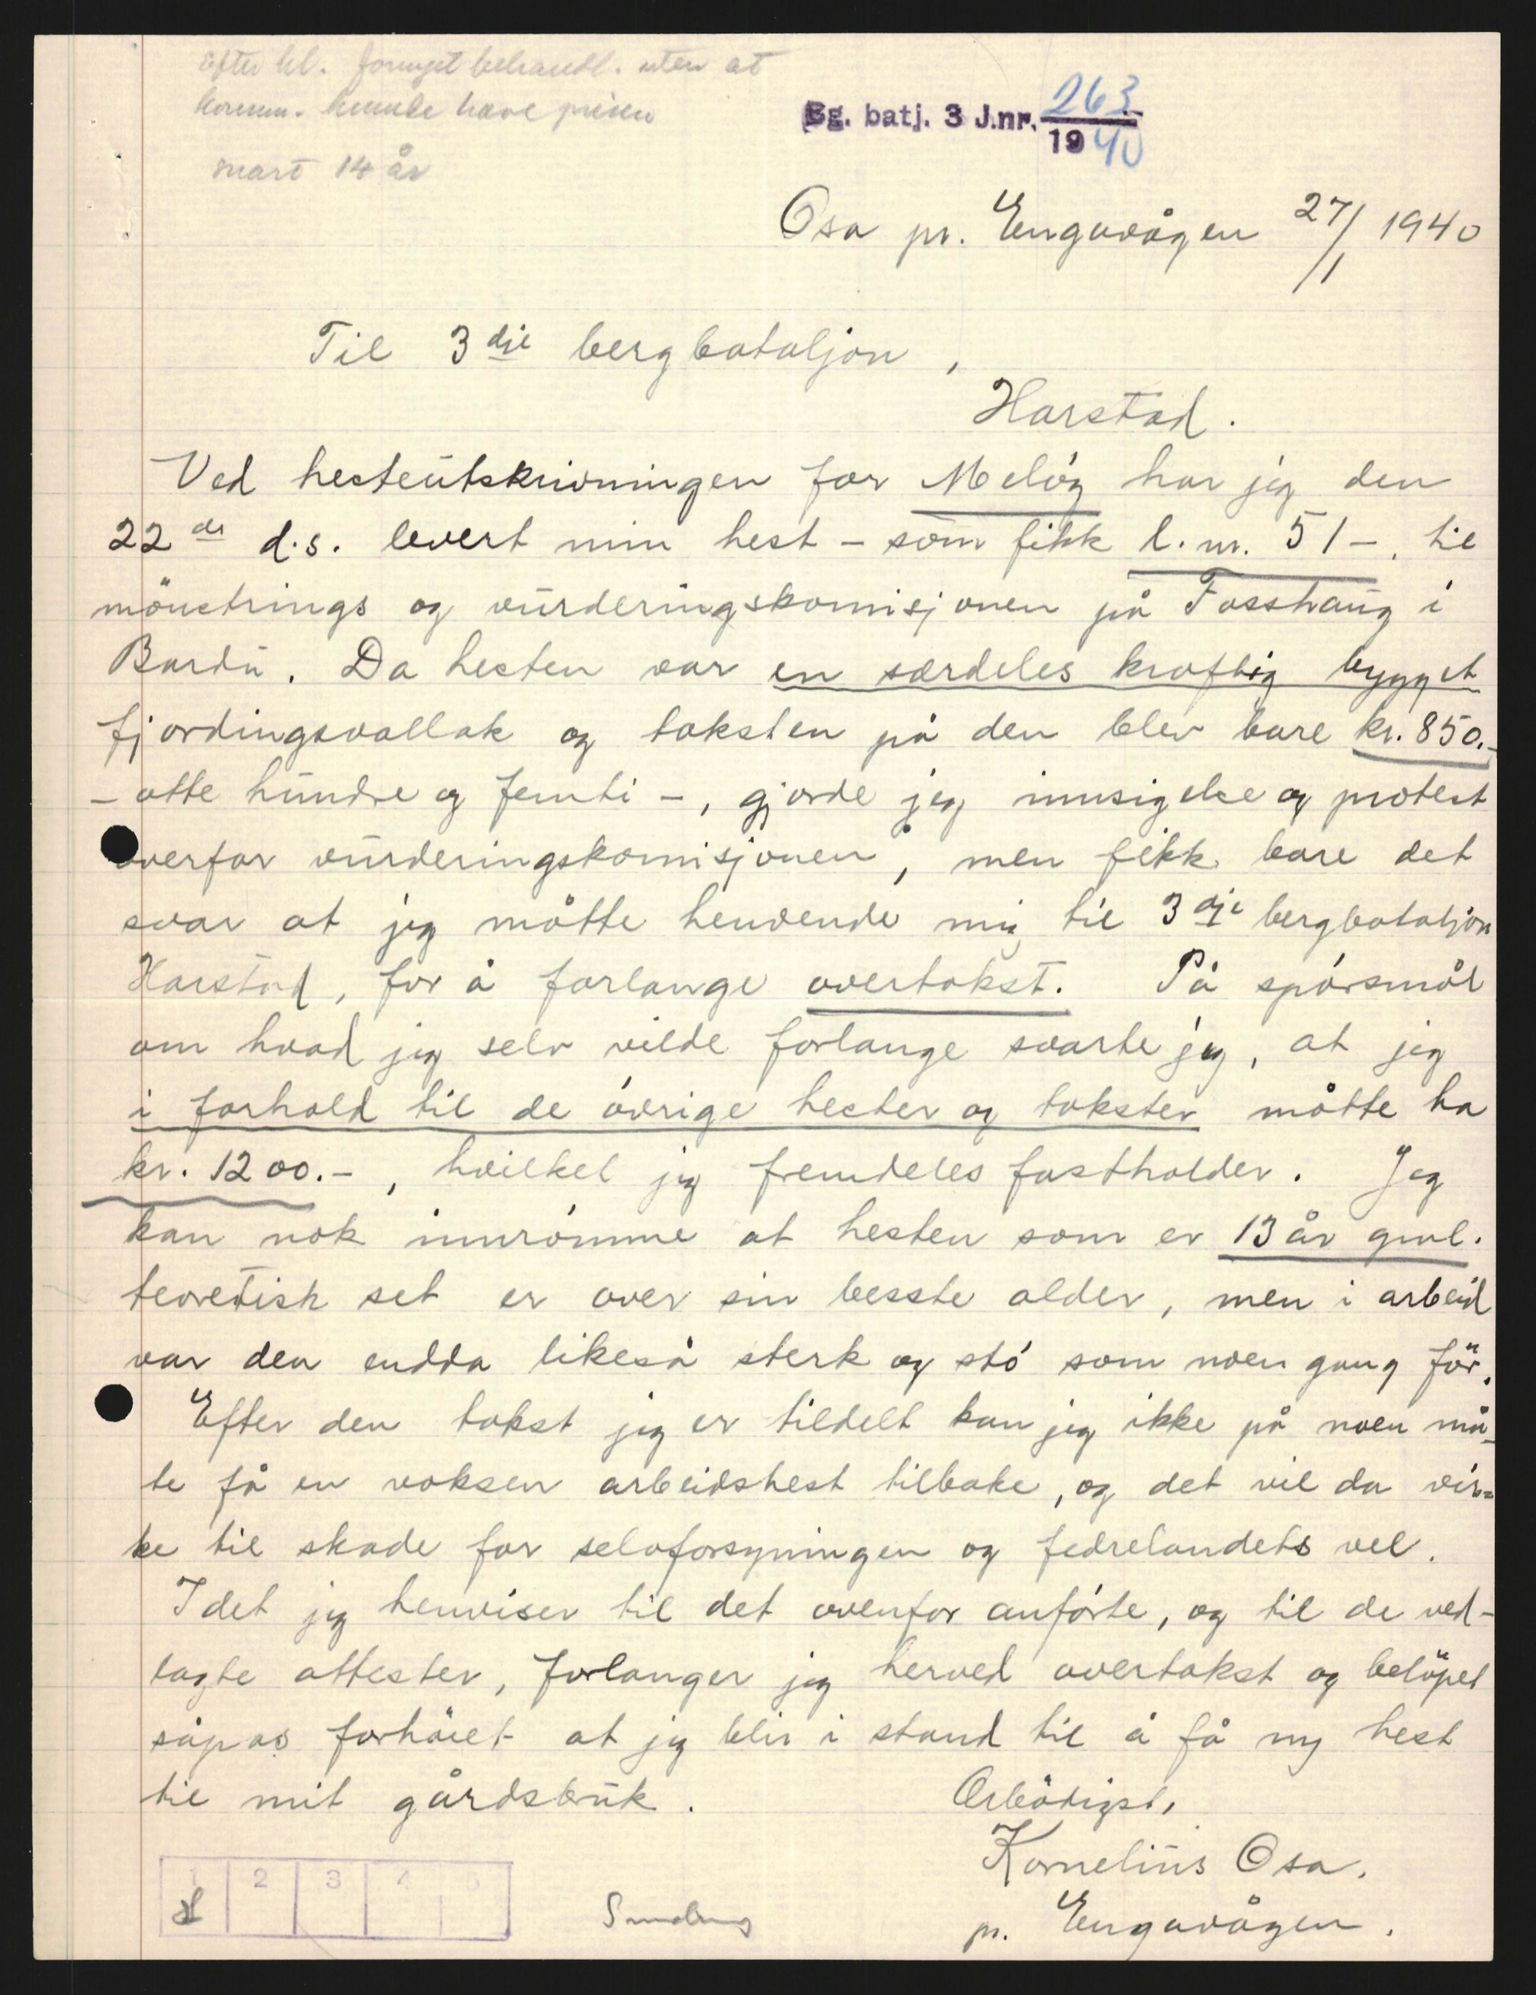 Efter kl. fornyet behandl. uten at
komm. kunde heve prisen
snart 14 år
Bg. batj. 3 J.nr. 263
1940
Osa pr. Engavågen 27/1 1940
Til 3dje bergbataljon,
Harstad.
Ved hesteutskrivningen for Melöy har jeg den
22de d.s. levert min hest – som fikk l. nr. 51 –, til
mönstrings og vurderingskomisjonen på Fosshaug i
Bardu. Da hesten var en særdeles kraftig bygget
fjordingsvallak og taksten på den blev bare kr. 850.-
- otte hundre og femti -, gjorde jeg innsigelse og protest
overfor vurderingskomisjonen, men fikk bare det
svar at jeg måtte henvende mig til 3dje bergbataljon
Harstad, for å forlange overtakst. På spórsmål
om hvad jeg selv vilde forlange svarte jeg, at jeg
i forhold til de óvrige hester og takster måtte ha
kr. 1200.-, hvilket jeg fremdeles fastholder. Jeg
kan nok innrómme at hesten som er 13 år gml.
teoretisk set er over sin besste alder, men i arbeid
var den endda likeså sterk og stó som noen gang för.
Efter den takst jeg er tildelt kan jeg ikke på noen må-
te få en voksen arbeidshest tilbake, og det vil da vir-
ke til skade for selvforsyningen og fedrelandets vel.
Idet jeg henviser til det ovenfor anfórte, og til de ved-
lagte attester, forlanger jeg herved overtakst og belöpet
såpas forhöiet at jeg blir i stand til å få ny hest
til mit gårdsbruk.
Ærbödigst,
Kornelius Osa.
pr. Engavågen.
1 2 3 4 5